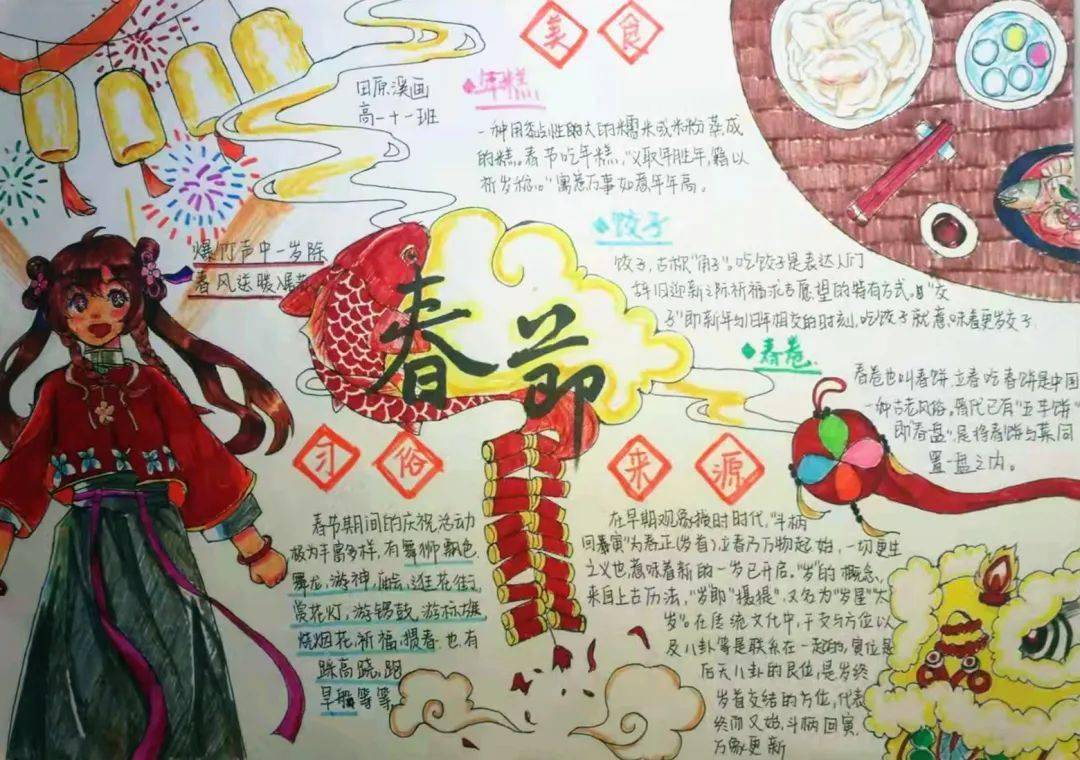 美食
田原溪画
高一十一班
年糕
一种用黏性的大的糯米或米粉蒸成
的糕。春节吃年糕,"义取年胜年,籍以
祈岁稔。"寓意万事如意年年高。
饺子
饺子,古称"角子"。吃饺子是表达人们
辞旧迎新之际祈福求吉愿望的特有方式。"交
子"即新年与旧年相交的时刻,吃饺子就意味着更岁交子
爆竹声中一岁除
春风送暖入屠
春节
春卷
春卷也叫春饼,立春吃春饼是中国
一种古老风俗。晋代已有"五芋饼"
即春盘",是将春饼与菜同
置一盘之内。
习俗
春节期间的庆祝活动
极为丰富多样,有舞狮,飘色,
舞龙,游神,庙会,逛花街,
赏花灯,游锣鼓,游标旗
烧烟花,祈福,掼春,也有
踩高跷,跑
旱船等等
来源
在早期观象授时时代,"斗柄
回寅"为春正(岁首),立春乃万物起始,一切更生
之义也,意味着新的一岁已开启。"岁"的概念,
来自上古历法,"岁即"摄提",又名为"岁星""太
岁"。在传统文化中,干支与方位以
及八卦等是联系在一起的,寅位是
后天八卦的艮位,是岁终
岁首交结的方位,代表
终而又始,斗柄回寅,
万象更新